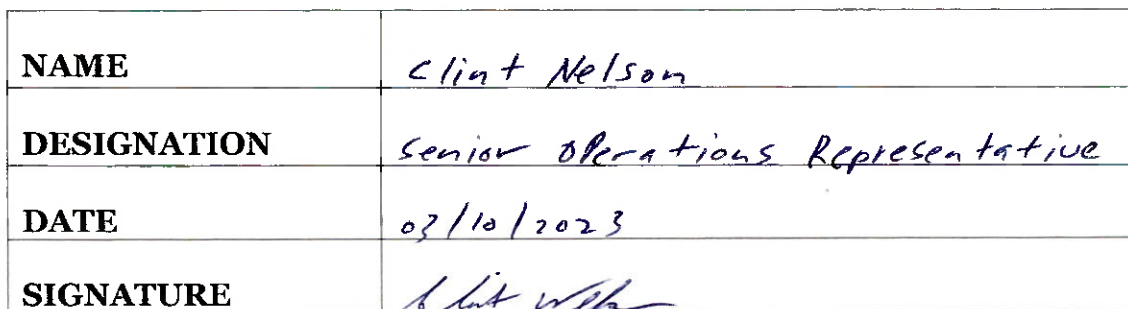 NAME Clint Nelson
DESIGNATION Senior Operations Representative
DATE 03/10/2023
SIGNATURE